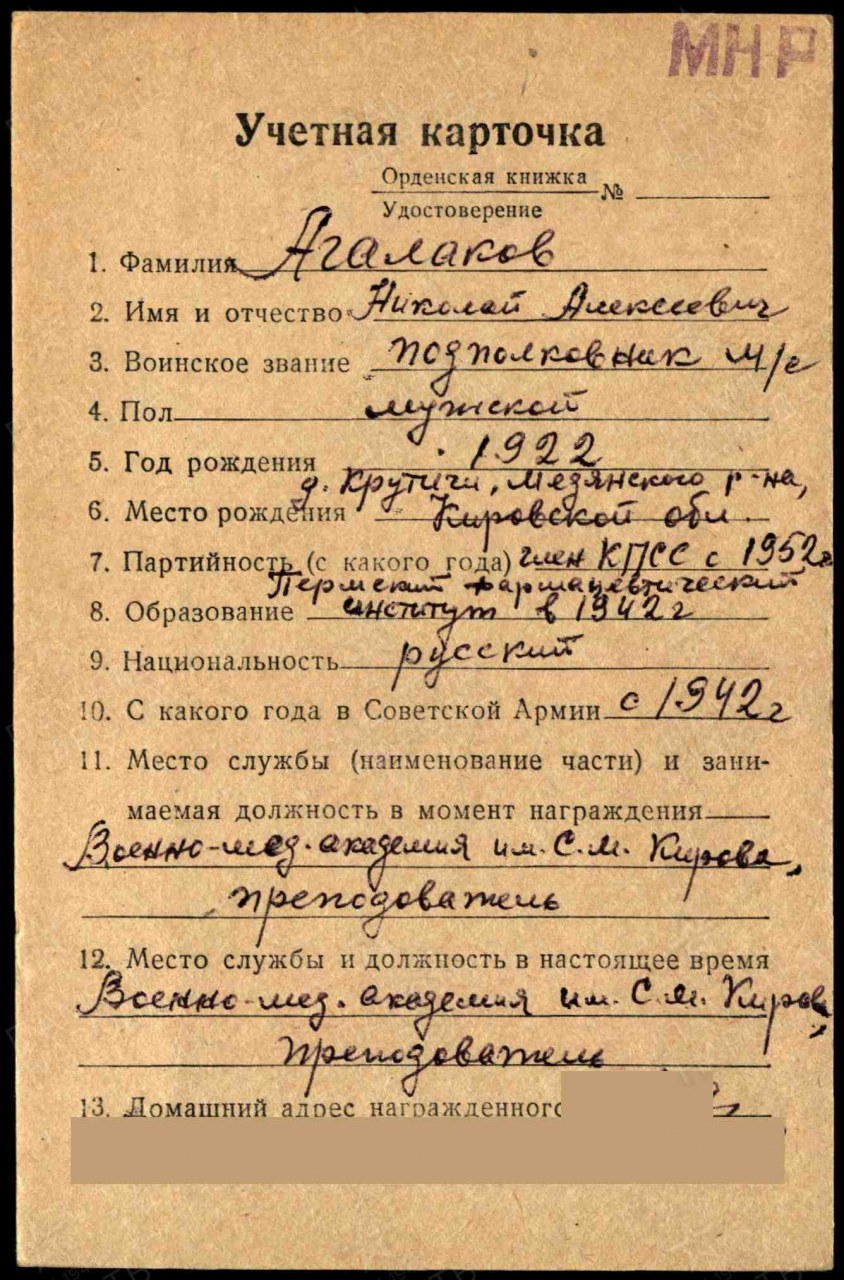 МНР
Учетная карточка
Орденская книжка
Удостоверение №
1. Фамилия Агалаков
2. Имя и отчество Николай Алексеевич
3. Воинское звание подполковник м/с
4. Пол мужской
5. Год рождения 1922
д. Крутичи, Медянского р-на,
6. Место рождения Кировской обл.
7. Партийность (с какого года) член КПСС с 1952г
Пермский фармацевтический
8. Образование институт в 1942 г
9. Национальность русский
10. С какого года в Советской Армии с 1942 г
11. Место службы (наименование части) и зани-
маемая должность в момент награждения
Военно-мед. академия им. С.М. Кирова,
преподователь
12. Место службы и должность в настоящее время
Военно-мед. академия им. С.М. Киров,
преподователь
13. Домашний адрес награжденного